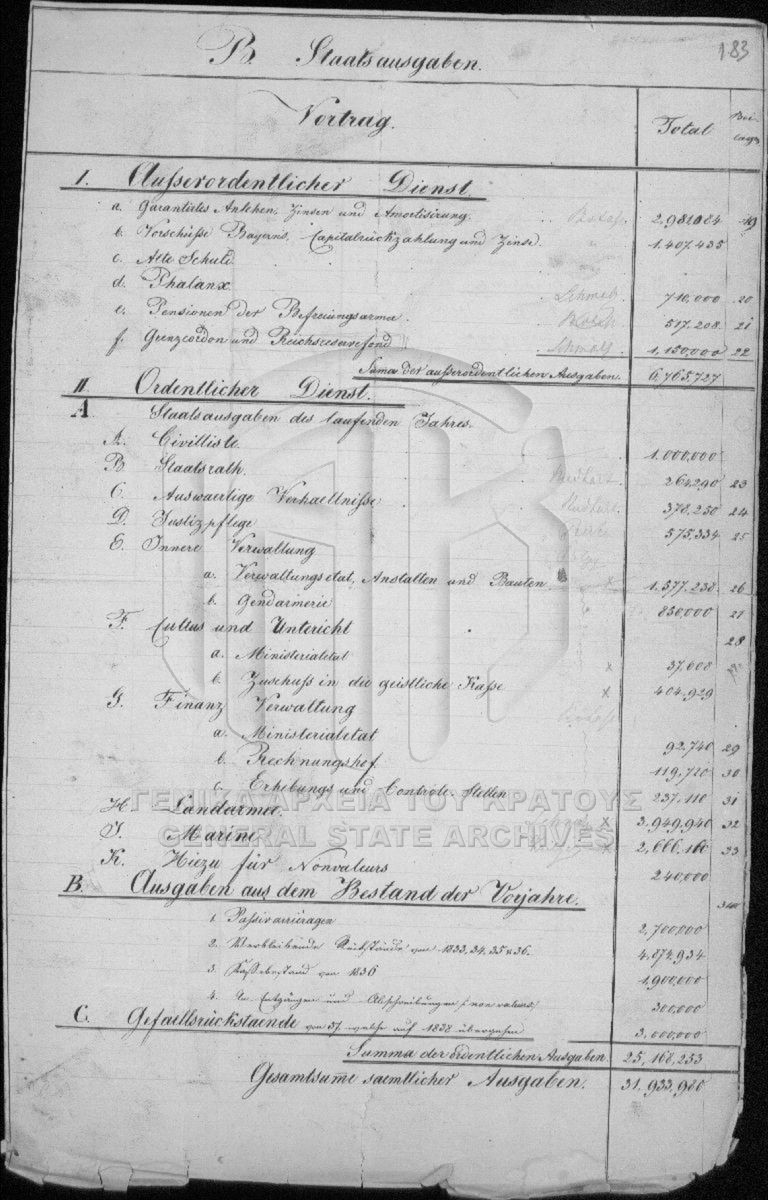 183
B. Staatsausgaben.
Vortrag. Total Bei-lagen
I. Ausserordentlicher Dienst.
a. Garantirtes Anlehen, Zinsen und Amortisirung. 2,981,084 19
b. Vorschüsse Bayerns, Capitalrückzahlung und Zinse. 1,407,435
c. Alte Schuld
d. Phalanx 710,000 20
e. Pensionen der Befreiungsarmee. 517,208 21
f. Grenzcordon und Reichsreservefond 1,150,000 22
Suma der ausserordentlichen Ausgaben. 6,765,727
II. Ordentlicher Dienst.
A Staatsausgaben des laufenden Jahres.
A. Civilliste 1,000,000
B Staatsrath. 264,290 23
C. Auswaertige Verhaeltnisse 378,250 24
D. Justizpflege 575,334 25
E. Innere Verwaltung
a. Verwaltungsetat, Anstalten und Bauten x 1,577,238 26
b. Gendarmerie 830,000 27
F. Cultus und Unterricht 28
a. Ministerialetat x 37,608
b. Zuschuss in die geistliche Kasse x 404,929
G. Finanz Verwaltung
a. Ministerialetat 92,740 29
b. Rechnungshof 119,720 30
c. Erhebungs und Controle-Stellen 237,110 31
H. Landarmee. x 3,949,940 32
J. Marine x 2,666,160 33
K. Hiezu für Nonvaleurs 240,000
B. Ausgaben aus dem Bestand der Vorjahre. 34
1. Passivarriéragen 2,700,000
2. Verbleibende Rückstände von 1833, 34, 35 u 36. 4,874,934
3. Kassebestand von 1836 1,900,000
4. An Entgängen und Abschreibungen (non valeurs) 300,000
C. Gefaellsrückstaende von 37 welche auf 1838 übergehen 3,000,000
Summa der ordentlichen Ausgaben 25,168,253
Gesamtsumme saemtlicher Ausgaben. 31,933,980
ΓΕΝΙΚΑ ΑΡΧΕΙΑ ΤΟΥ ΚΡΑΤΟΥΣ
GENERAL STATE ARCHIVES